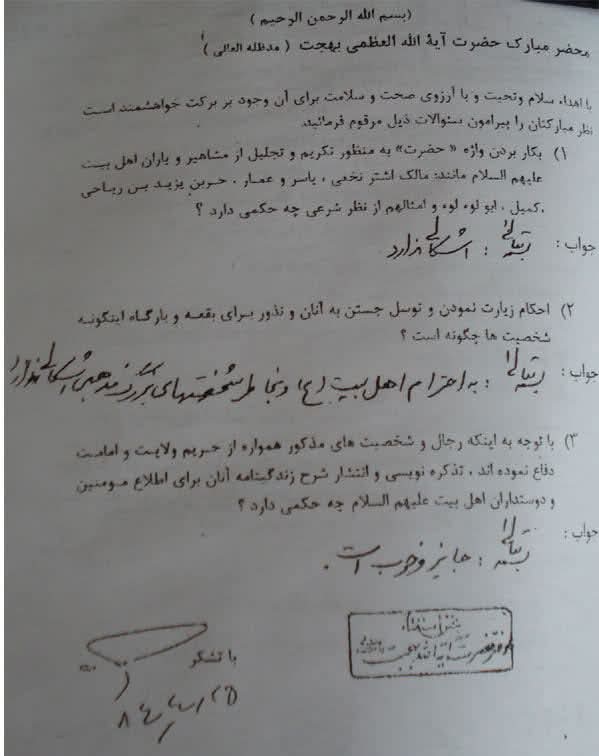 (بسم الله الرحمن الرحیم)
محضر مبارک حضرت آیة الله العظمی بهجت (مدظله العالی)
با اهداء سلام وتحیت و با آرزوی صحت و سلامت برای آن وجود بر برکت خواهشمند است
نظر مبارکتان را پیرامون سئوالات ذیل مرقوم فرمائید.
۱) بکار بردن واژه « حضرت» به منظور تکریم و تجلیل از مشاهیر و یاران اهل بیت
علیهم السلام مانند: مالک اشتر نخعی ، یاسر و عمار ، حربن یزید بن ریاحی
،کمیل ، ابو لوء لوء و امثالهم از نظر شرعی چه حکمی دارد ؟
جواب : بسمه تعالی : اشکالی ندارد
۲) احکام زیارت نمودن و توسل جستن به آنان و نذور برای بقعه و بارگاه اینگونه
شخصیت ها چگونه است ؟
جواب : بسمه تعالی : به احترام اهل بیت (ع) و بخاطر شخصیتهای بزرگ مذهبی اشکالی ندارد
۳) با توجه به اینکه رجال و شخصیت های مذکور همواره از حریم ولایت و امامت
دفاع نموده اند ، تذکره نویسی و انتشار شرح زندگینامه آنان برای اطلاع مومنین
و دوستداران اهل بیت علیهم السلام چه حکمی دارد ؟
جواب : بسمه تعالی : جایز و خوب است .
با تشکر